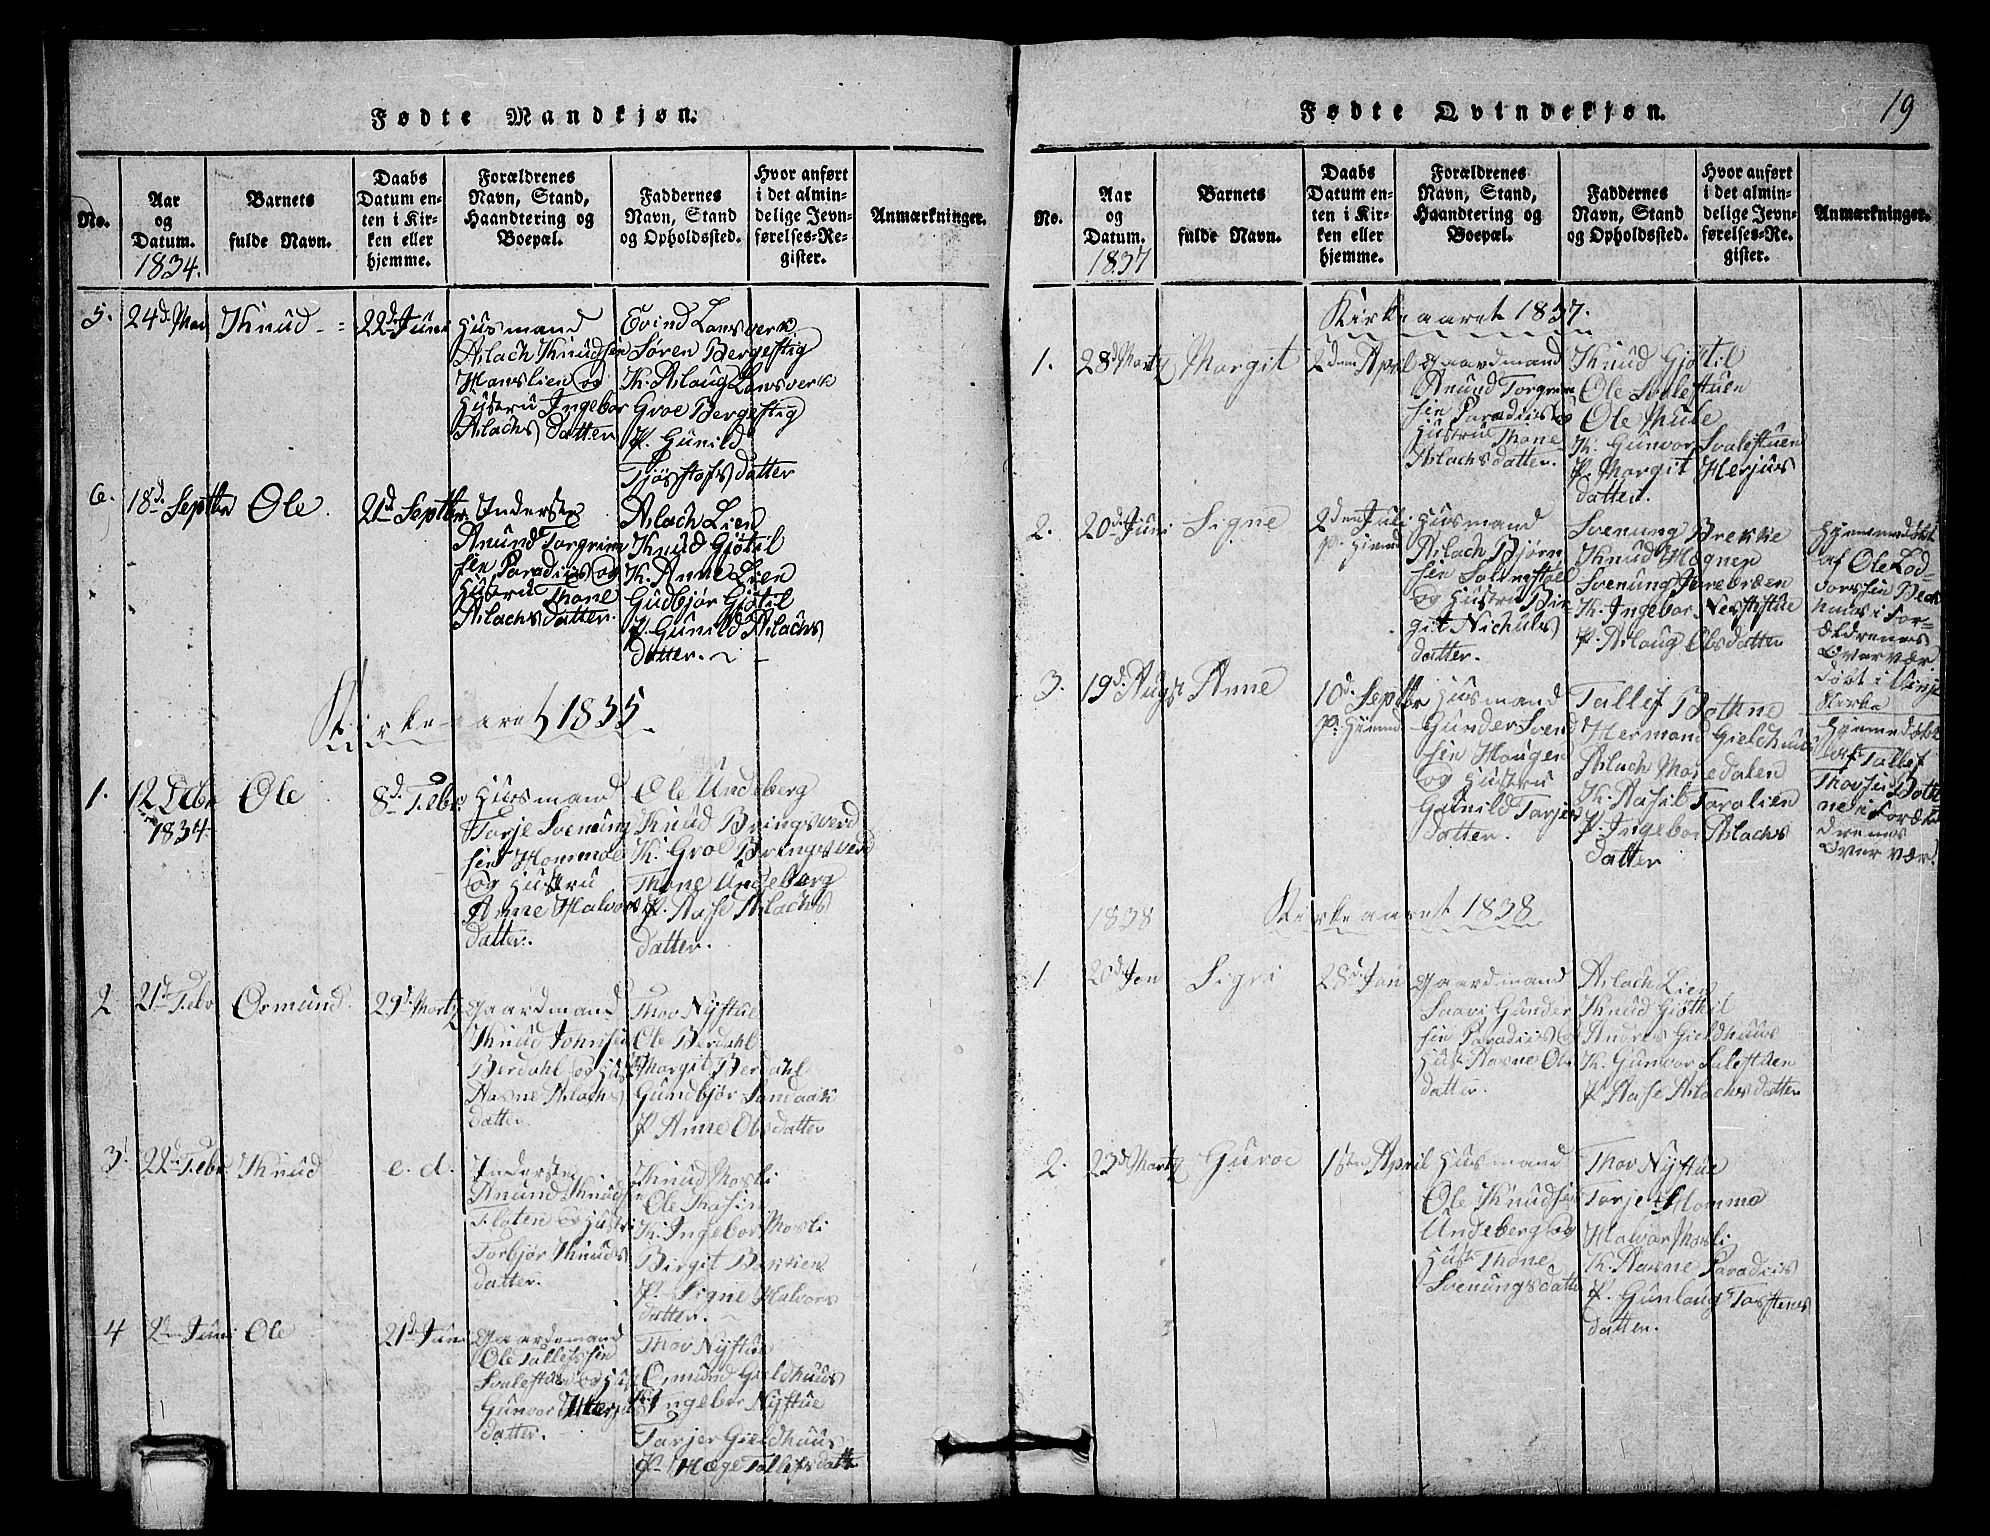 Fødte Mandkjøn.
No.
Aar
og
Datum.
1834.
Barnets
fulde Navn.
Daabs
Datum en-
ten i Kir-
ken eller
hjemme.
Forældrenes
Navn, Stand,
Haandtering og
Boepæl.
Faddernes
Navn, Stand
og Opholdssted.
Hvor anført
i det almin-
delige Jevn-
førelses-Re-
gister.
Anmærkninger.
5.
24d Mai
Knud
22d Juni
Husmand
Aslach Knudsen
Hanslien og
Hustru Ingebor
Aslachsdatter
Evind Lansverk
Søren Bergestig
K. Aslaug Lansverk
Groe Bergestig
P. Gunild
Tjøstofsdatter
6.
18d Septbr
Ole
21d Septbr
Inderste
Anund Torgrim
sen Paradiis og
Hustru Thone
Aslachsdatter.
Aslach Lien
Knud Gjøtil
K. Anne Lien
Gudbjør Gjøtil
P. Gunild Aslachs
datter.
Kirkeaaret 1835
1.
12 Decbr
1834
Ole
8d Febr
Husmand
Tarje Svenung
sen Homme
og Hustru
Anne Halvors
datter.
Ole Undeberg
Knud Bringsverd
K. Groe Bringsverd
Thone Undeberg
P. Aase Aslachs
datter.
2
21d Febr
Osmund
29d Martz
Gaardmand
Knud Johnsen
Berdahl og Hust
Aasne Aslachs
datter.
Thov Nystue
Ole Berdahl
Margit Berdahl
Gundbjør Sandaak
P Anne Olsdatter
3.
22d Febr
Knud
e. d.
Inderste
Anund Knuds
Floten og Hustr
Torbjør Knuds
datter.
Knud Mosli
Ole
K. Ingebor Mosli
Birgit
P. Signe Halvors
datter.
4
2den Juni
Ole
21d Juni
Gaardmand
Ole Tallefssen
Svalestuen og Hust
Gunvor
datter.
Thov Nystue
Osmund Gieldhuus
K Ingebor Nystue
Tarjer Gieldhuus
P. Hæge Tallefsdatte
Fødte Qvindekjøn.
19
No.
Aar
og
Datum.
1837
Barnets
fulde Navn.
Daabs
Datum en-
ten i Kir-
ken eller
hjemme.
Forældrenes
Navn, Stand,
Haandtering og
Boepæl.
Faddernes
Navn, Stand
og Opholdssted.
Hvor anført
i det almin-
delige Jevn-
førelses-Re-
gister.
Anmærkninger.
Kirkeaaret 1837.
1.
28d Martz
Margit
2den April
Gaardmand
Anund Torgrim
sen Paradiis og
Hustru Thone
Aslachsdatter.
Knud Gjøtil
Ole Svalestuen
Ole Mule
K. Gunvor Svalestuen
P. Margit Herjus
datter.
2.
20d Juni
Signe
2den Juli
p. Hiemd
Husmand
Aslach Bjørn
sen
og Hustru Bir
git Nichuls
datter.
Svenung Brekke
Knud Mognen
Svenung
K. Ingebor
P. Aslaug Olsdatter
Hiemmedøbt
af Ole Lod-
vorssen Bech
huus i For-
ældrenes
Overvær
døbt i Vinje
Kirke
3.
19d Augst
Anne
10d Septbr
p. Hiemd
Husmand
Gunder Svend
sen Haugen
og Hustru
Gunild Tarjes
datter.
Tallef Bothne
Hermand Gieldhuus
Aslach Mosedalen
K. Aasil
P. Ingebor Aslachs
datter
Hjemmedøbt
af Tallef
Thovsen Both
ne i Foræl
drenes
Overvær.
1838
Kirkeaaret 1838.
1
20d Jan
Sigri
28d Jan
Gaardmand
Saavi Gunder
sen Paradiis og
Hust Aasne Ols
datter.
Aslach Lien
Knud Gjøthil
Andres Gieldhuus
K. Gunvor Salestuen
P Aase Aslachsdatter
2.
23d Martz
Guroe
1ste April
Husmand
Ole Knudsen
Undeberg og
Hust Thone
Svenungsdatte
Thov Nystue
Tarje Homme
Halvor Mosli
K. Aasne Paradiis
P. Gunlaug
datter.